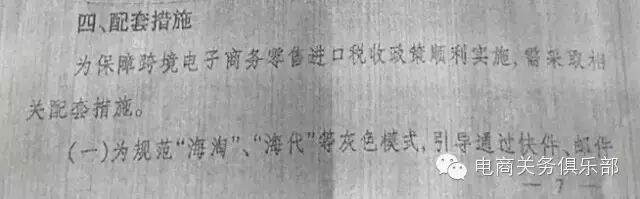 四、配套措施
为保障跨境电子商务零售进口税收政策顺利实施,需采取相
关配套措施。
(一)为规范“海淘”、“海代”等灰色模式,引导通过快件、邮件
电商关务俱乐部
— 7 —